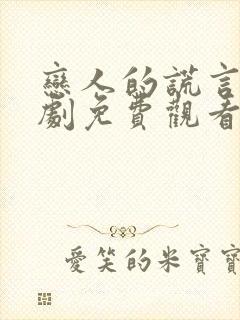 戀人的謊言
劇免費觀看
愛笑的米寶寶